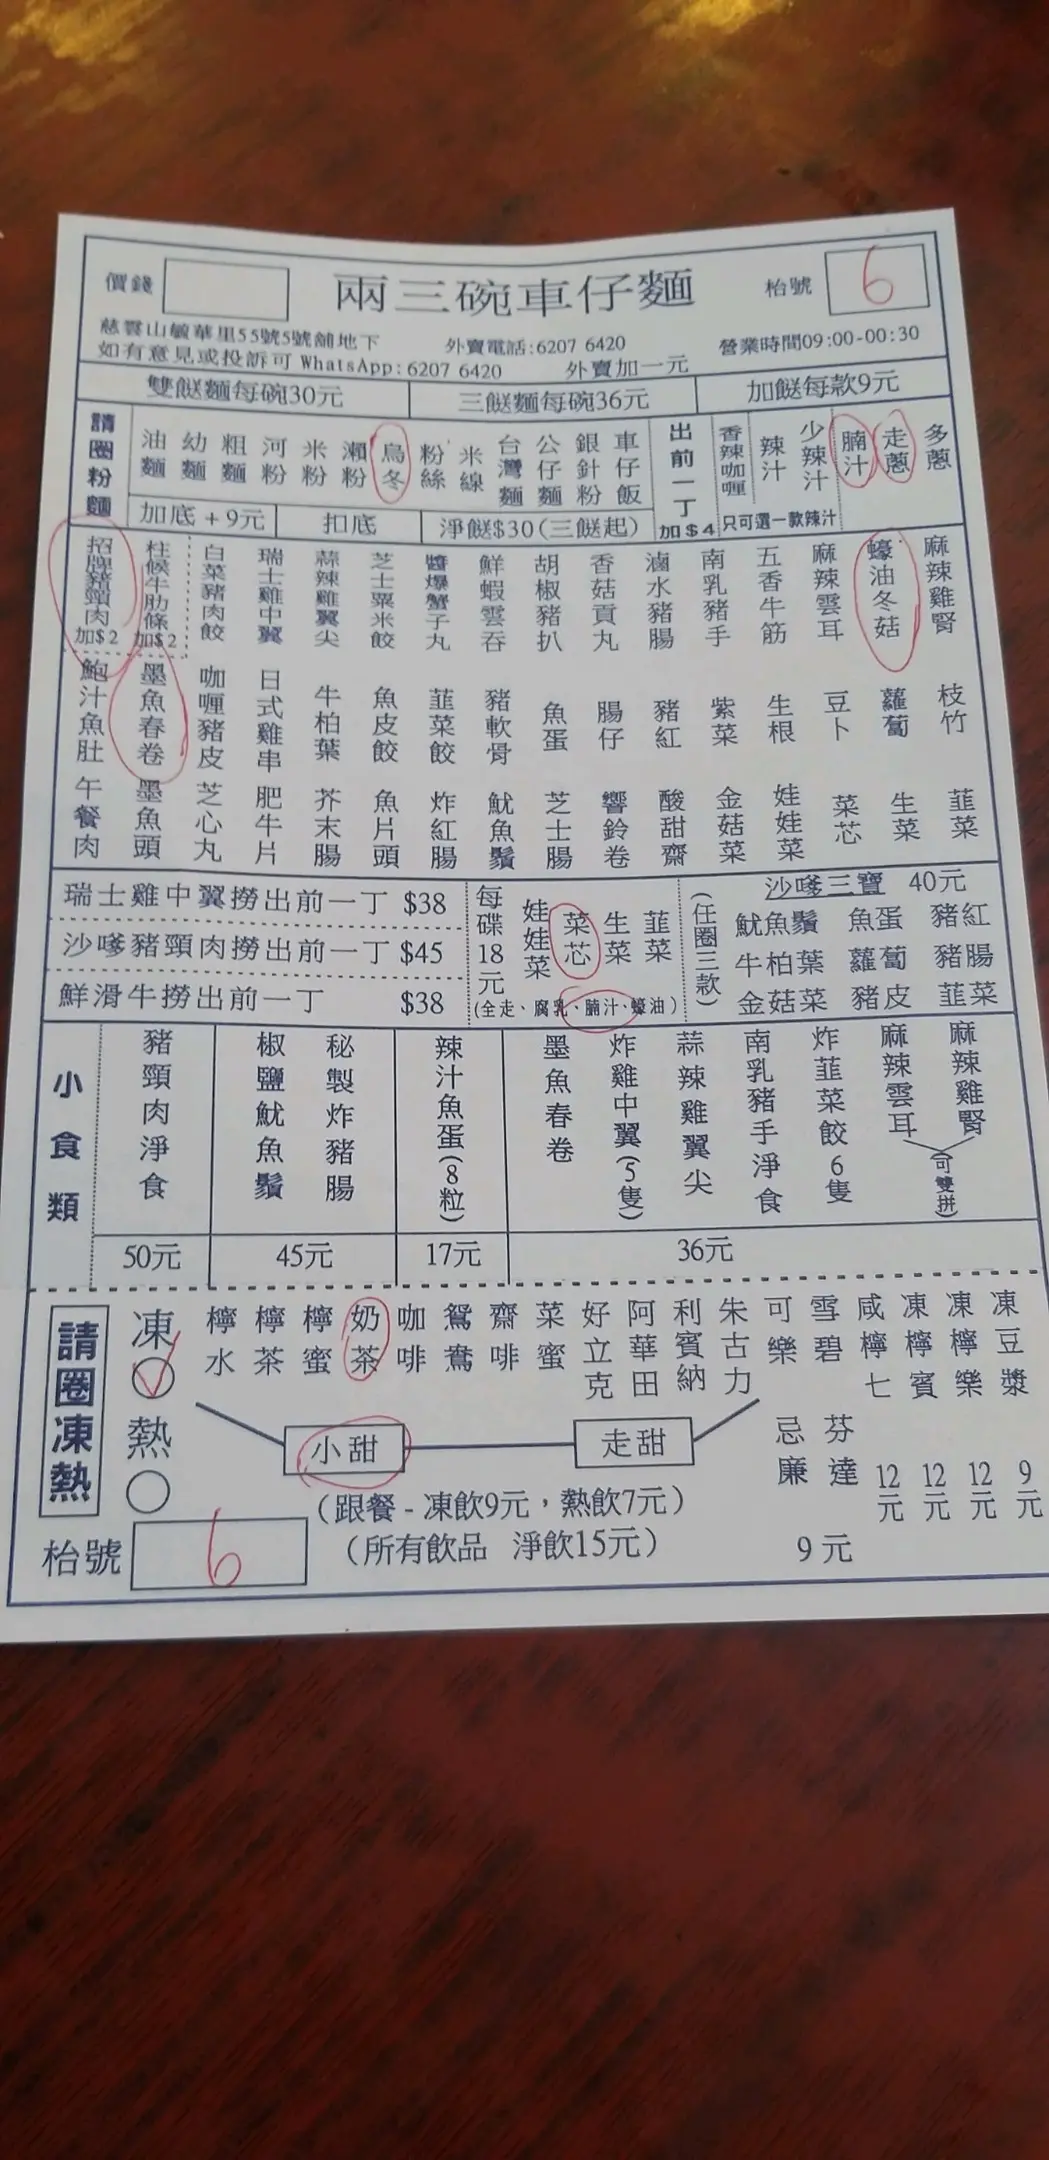 價錢
兩三碗車仔麵
枱號
6
慈雲山毓華里55號5號舖地下
外賣電話:6207 6420
營業時間09:00-00:30
如有意見或投訴可 WhatsApp:6207 6420
外賣加一元
雙餸麵每碗30元
三餸麵每碗36元
加餸每款9元
請圈粉麵
油麵
幼麵
粗麵
河粉
米粉
瀨粉
烏冬
粉絲
米線
台灣麵
公仔麵
銀針粉
車仔飯
出前一丁
加$4
香辣咖喱
辣汁
少辣汁
只可選一款辣汁
腩汁
走蔥
多蔥
加底+9元
扣底
淨餸$30(三餸起)
招牌豬頸肉
加$2
柱候牛肋條
加$2
白菜豬肉餃
瑞士雞中翼
蒜辣雞翼尖
芝士粟米餃
醬爆蟹子丸
鮮蝦雲吞
胡椒豬扒
香菇貢丸
滷水豬腸
南乳豬手
五香牛筋
麻辣雲耳
蠔油冬菇
麻辣雞腎
鮑汁魚肚
墨魚春卷
咖喱豬皮
日式雞串
牛柏葉
魚皮餃
韮菜餃
豬軟骨
魚蛋
腸仔
豬紅
紫菜
生根
豆卜
蘿蔔
枝竹
午餐肉
墨魚頭
芝心丸
肥牛片
芥末腸
魚片頭
炸紅腸
魷魚鬚
芝士腸
響鈴卷
酸甜齋
金菇菜
娃娃菜
菜芯
生菜
韮菜
瑞士雞中翼撈出前一丁 $38
沙嗲豬頸肉撈出前一丁 $45
鮮滑牛撈出前一丁 $38
每碟18元
娃娃菜
菜芯
生菜
韮菜
(全走、腐乳、腩汁、蠔油)
(任圈三款)
沙嗲三寶 40元
魷魚鬚 魚蛋 豬紅
牛柏葉 蘿蔔 豬腸
金菇菜 豬皮 韮菜
小食類
豬頸肉淨食
50元
椒鹽魷魚鬚
秘製炸豬腸
45元
辣汁魚蛋(8粒)
17元
墨魚春卷
炸雞中翼(5隻)
蒜辣雞翼尖
南乳豬手淨食
炸韮菜餃6隻
麻辣雲耳
麻辣雞腎
(可雙拼)
36元
請圈凍熱
凍
熱
檸水
檸茶
檸蜜
奶茶
咖啡
鴛鴦
齋啡
菜蜜
好立克
阿華田
利賓納
朱古力
可樂
雪碧
忌廉
芬達
9元
咸檸七
12元
凍檸賓
12元
凍檸樂
12元
凍豆漿
9元
小甜
走甜
(跟餐-凍飲9元，熱飲7元)
(所有飲品 淨飲15元)
枱號
6